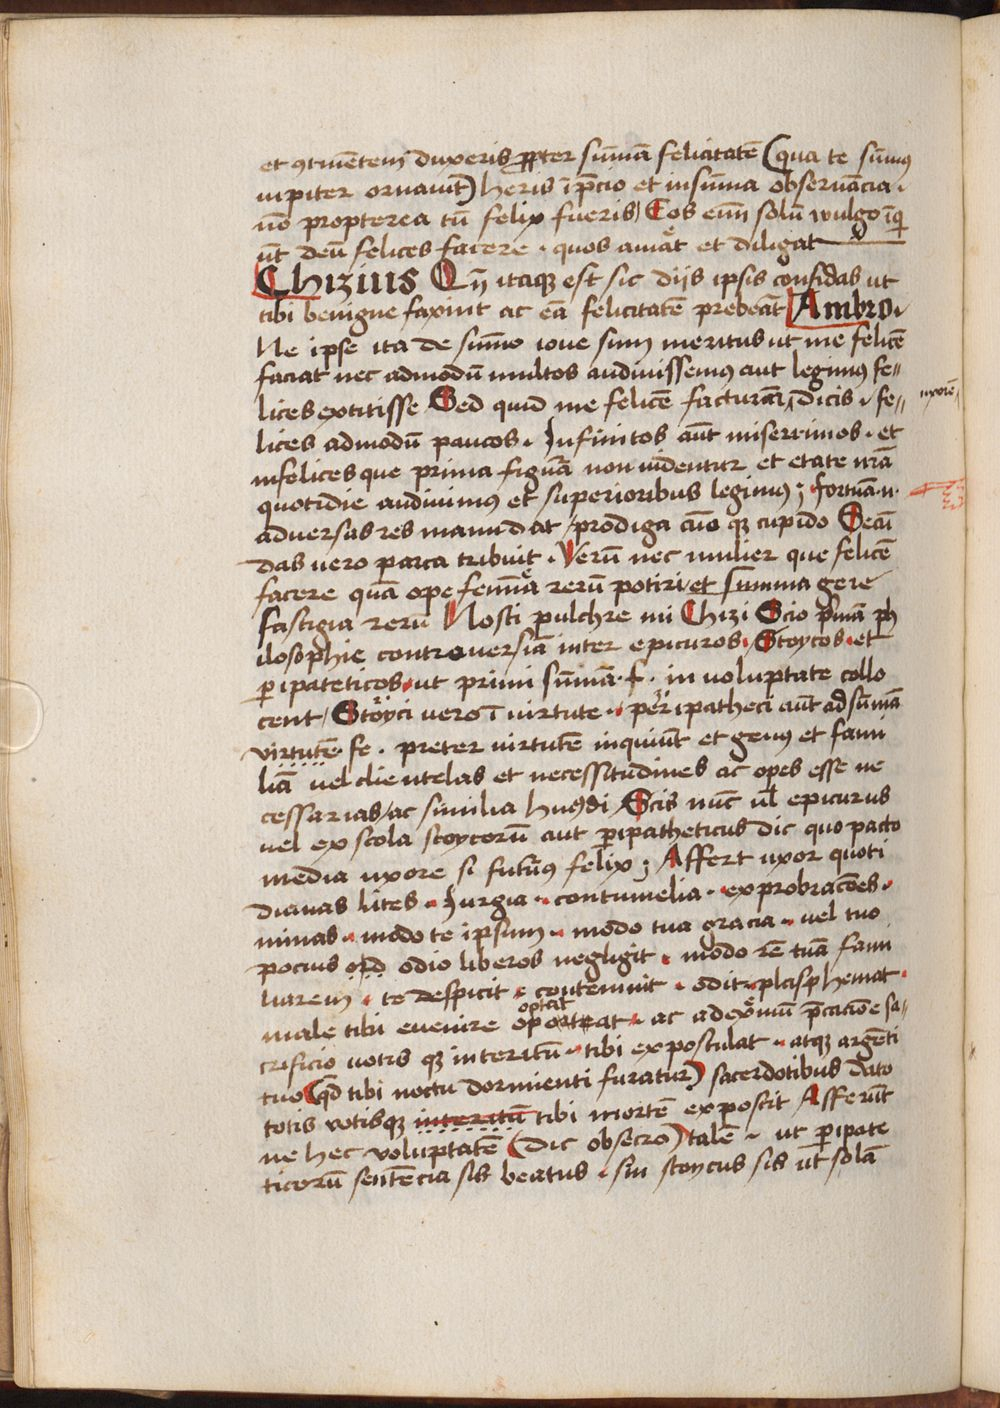 et ꝯtinētem duxeris ꝓpter sum̄ā felicitatē (qua te sūmꝰ
iupiter ornauit) heris ī p̄cio et in sum̄a obseruācia .
nō propterea tū felix fueris) Eos em̄ solū wulgo īq̄
ūt deū felices facere . quos amāt et diligat
Chizius Qn̄ itaqꝫ est sic dijs ipsis confidas ut
tibi benigne faxint ac eā felicitatē prebeāt Ambro.
Ne ipse ita de summo ioue sum meritus ut me felicē
faciat nec admodū multos audiuissemꝰ aut legimꝰ fe-
lices extitisse Sed quid me felicē facturā dicis . fe-
uxorē
lices admodū paucos . Infinitos aūt miserrimos . et
infelices que prima figura non uidentur et etate nr̄ā
quotidie audiuimꝰ et superioribus legimꝰ ; fortūa .n.
aduersas res mandat / prodiga cuō qꝫ cupido Secū
das uero parca tribuit . Verū nec mulier que felicē
facere quā ope femīā rerū potiri / et summa gere
fastigia rerū Nosti pulchre mi Chizi Scio primā ph
ilosophie controuersiā inter epicuros . Stoycos . et
ꝑipateticos . ut primi sum̄ā .f. in voluptate collo
cent / Stoyci uero ī uirtute . peripatheci aūt ad sum̄ā
virtutē . fe . preter uirtutē inquiūt et genꝰ et fami
liā uel clientelas et necessitudines ac opes esse ne
cessarias / ac similia huꝰdi Scis nūc ul̄ epicurus
uel ex scola stoycorū aut ꝑipatheticus dic quo pacto
media uxore si futurꝰ felix ; Affert uxor quoti
dianas lites . Iurgia . contumelia . exprobracōes .
minas . modo te ipsum . modo tua gracia . uel tuo
pocius opd odio liberos negligit . modo rē tuā fami
liarem . te despicit . contemnit . odit . plasphemat .
optat
male tibi euenire oporteat . ac ad exōmiū p̄cacione sa-
crificio uotis qꝫ interitū . tibi expostulat . atqꝫ argēti
tuo (qd̄ tibi noctu dormienti furatur) sacerdotibus dato
totis votisqꝫ interitū tibi mortē exposcit Afferūt
ne hec voluptatē (dic obsecro) talē . ut ꝑipate
ticorū sentēcia sis beatus . sin stoycus sis ut solā